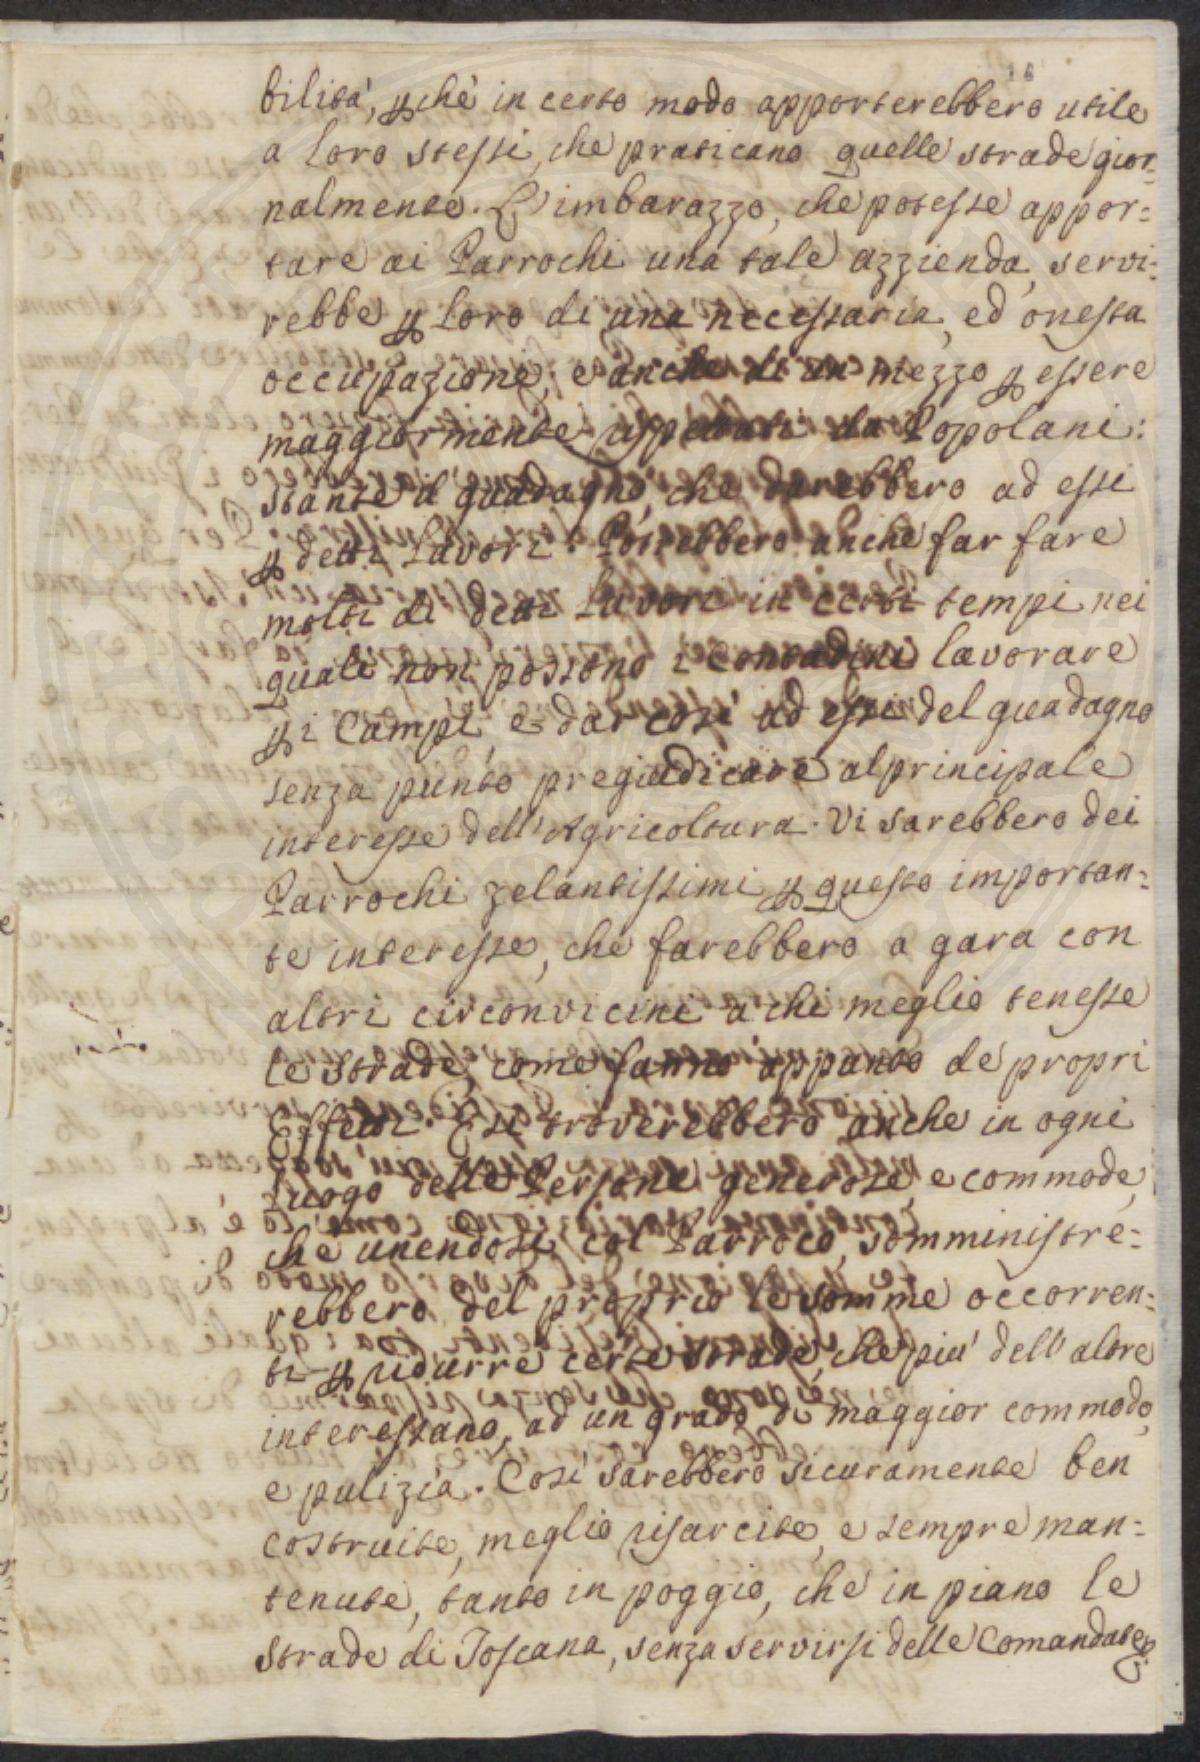 16
bilità, p̱chè in certo modo apporterebbero utile
a loro stessi, che praticano quelle strade gior=
nalmente. L'imbarazzo, che potesse appor=
tare ai Parrochi una tale azzienda, servi=
rebbe p̱ loro di una necessaria, ed onesta
occupazione, e anche di un mezzo p̱ essere
maggiormente rispettati da Popolani:
stante il guadagno, che darebbero ad essi
p̱ detti Lavori. Potrebbero anche far fare
molti di detti Lavori in certi tempi nei
quali non possono i Contadini lavorare
p̱ i Campi e dar così ad essi del guadagno
senza punto pregiudicare al principale
interesse dell'Agricoltura. Vi sarebbero dei
Parrochi zelantissimi p̱ questo importan=
te interesse, che farebbero a gara con
altri circonvicini a chi meglio tenesse
le strade, come fanno appunto de propri
Effetti. E si troverebbero anche in ogni
Luogo delle Persone generose, e commode,
che unendosi col Parroco, somministre=
rebbero del proprio le somme occorren=
ti p̱ ridurre certe strade, che più dell'altre
interessano, ad un grado di maggior commodo,
e pulizia. Così sarebbero sicuramente ben
costruite, meglio risarcite, e sempre man=
tenute, tanto in poggio, che in piano le
Strade di Toscana, senza servirsi delle Comandate.